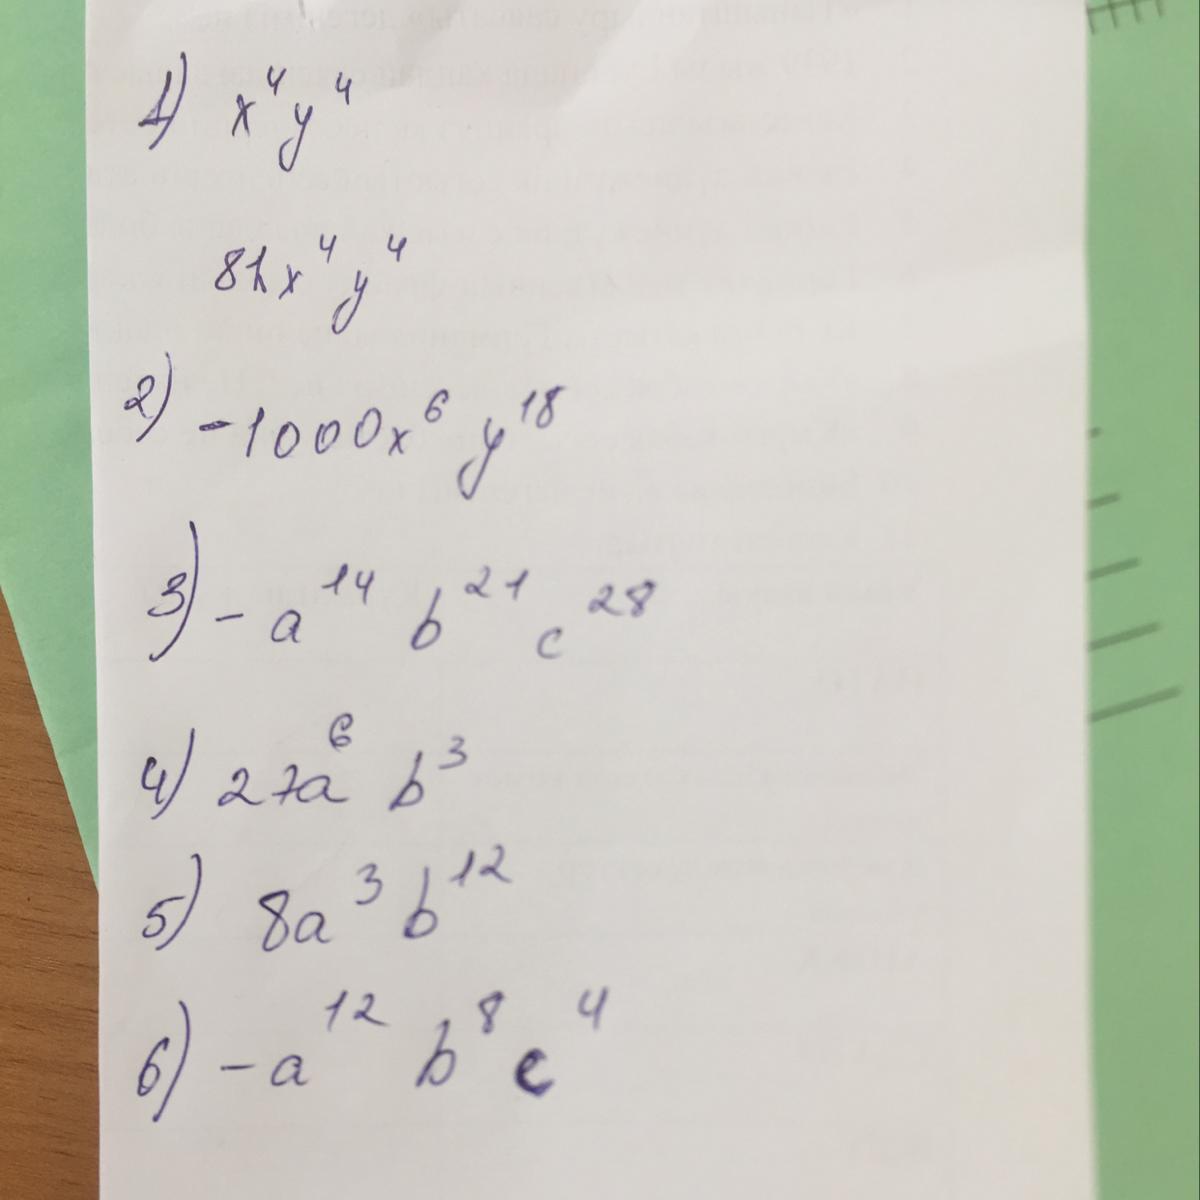 1) x⁴y⁴
81x⁴y⁴
2) -1000x⁶ y¹⁸
3) - a¹⁴ b²¹ c²⁸
4) 27a⁶ b³
5) 8a³ b¹²
6) - a¹² b⁸ c⁴